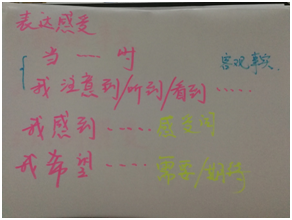 表达感受
当……时 客观事实
我注意到/听到/看到……
我感到…… 感受词
我希望…… 需要/期待